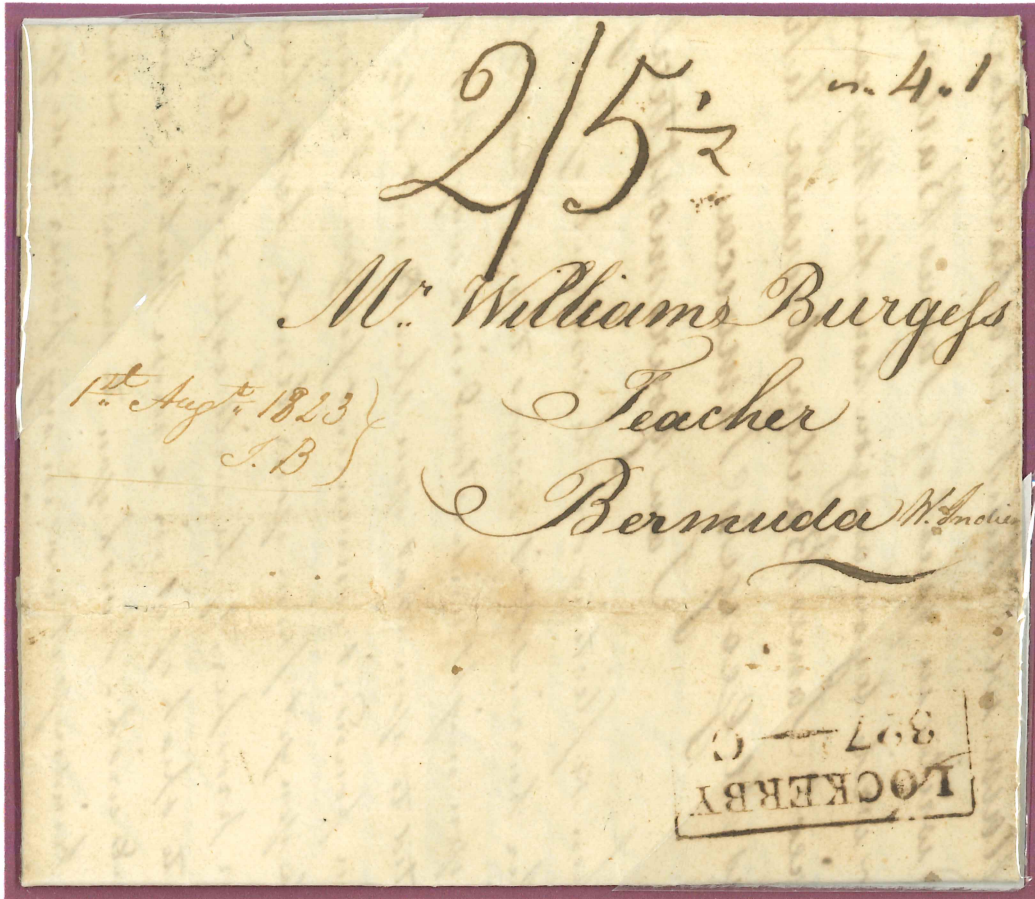 2/5 1/2
4.1
Mr. William Burgess
Teacher
Bermuda W. Indies
1st Augt. 1823
J. B
LOCKERBY
397—C